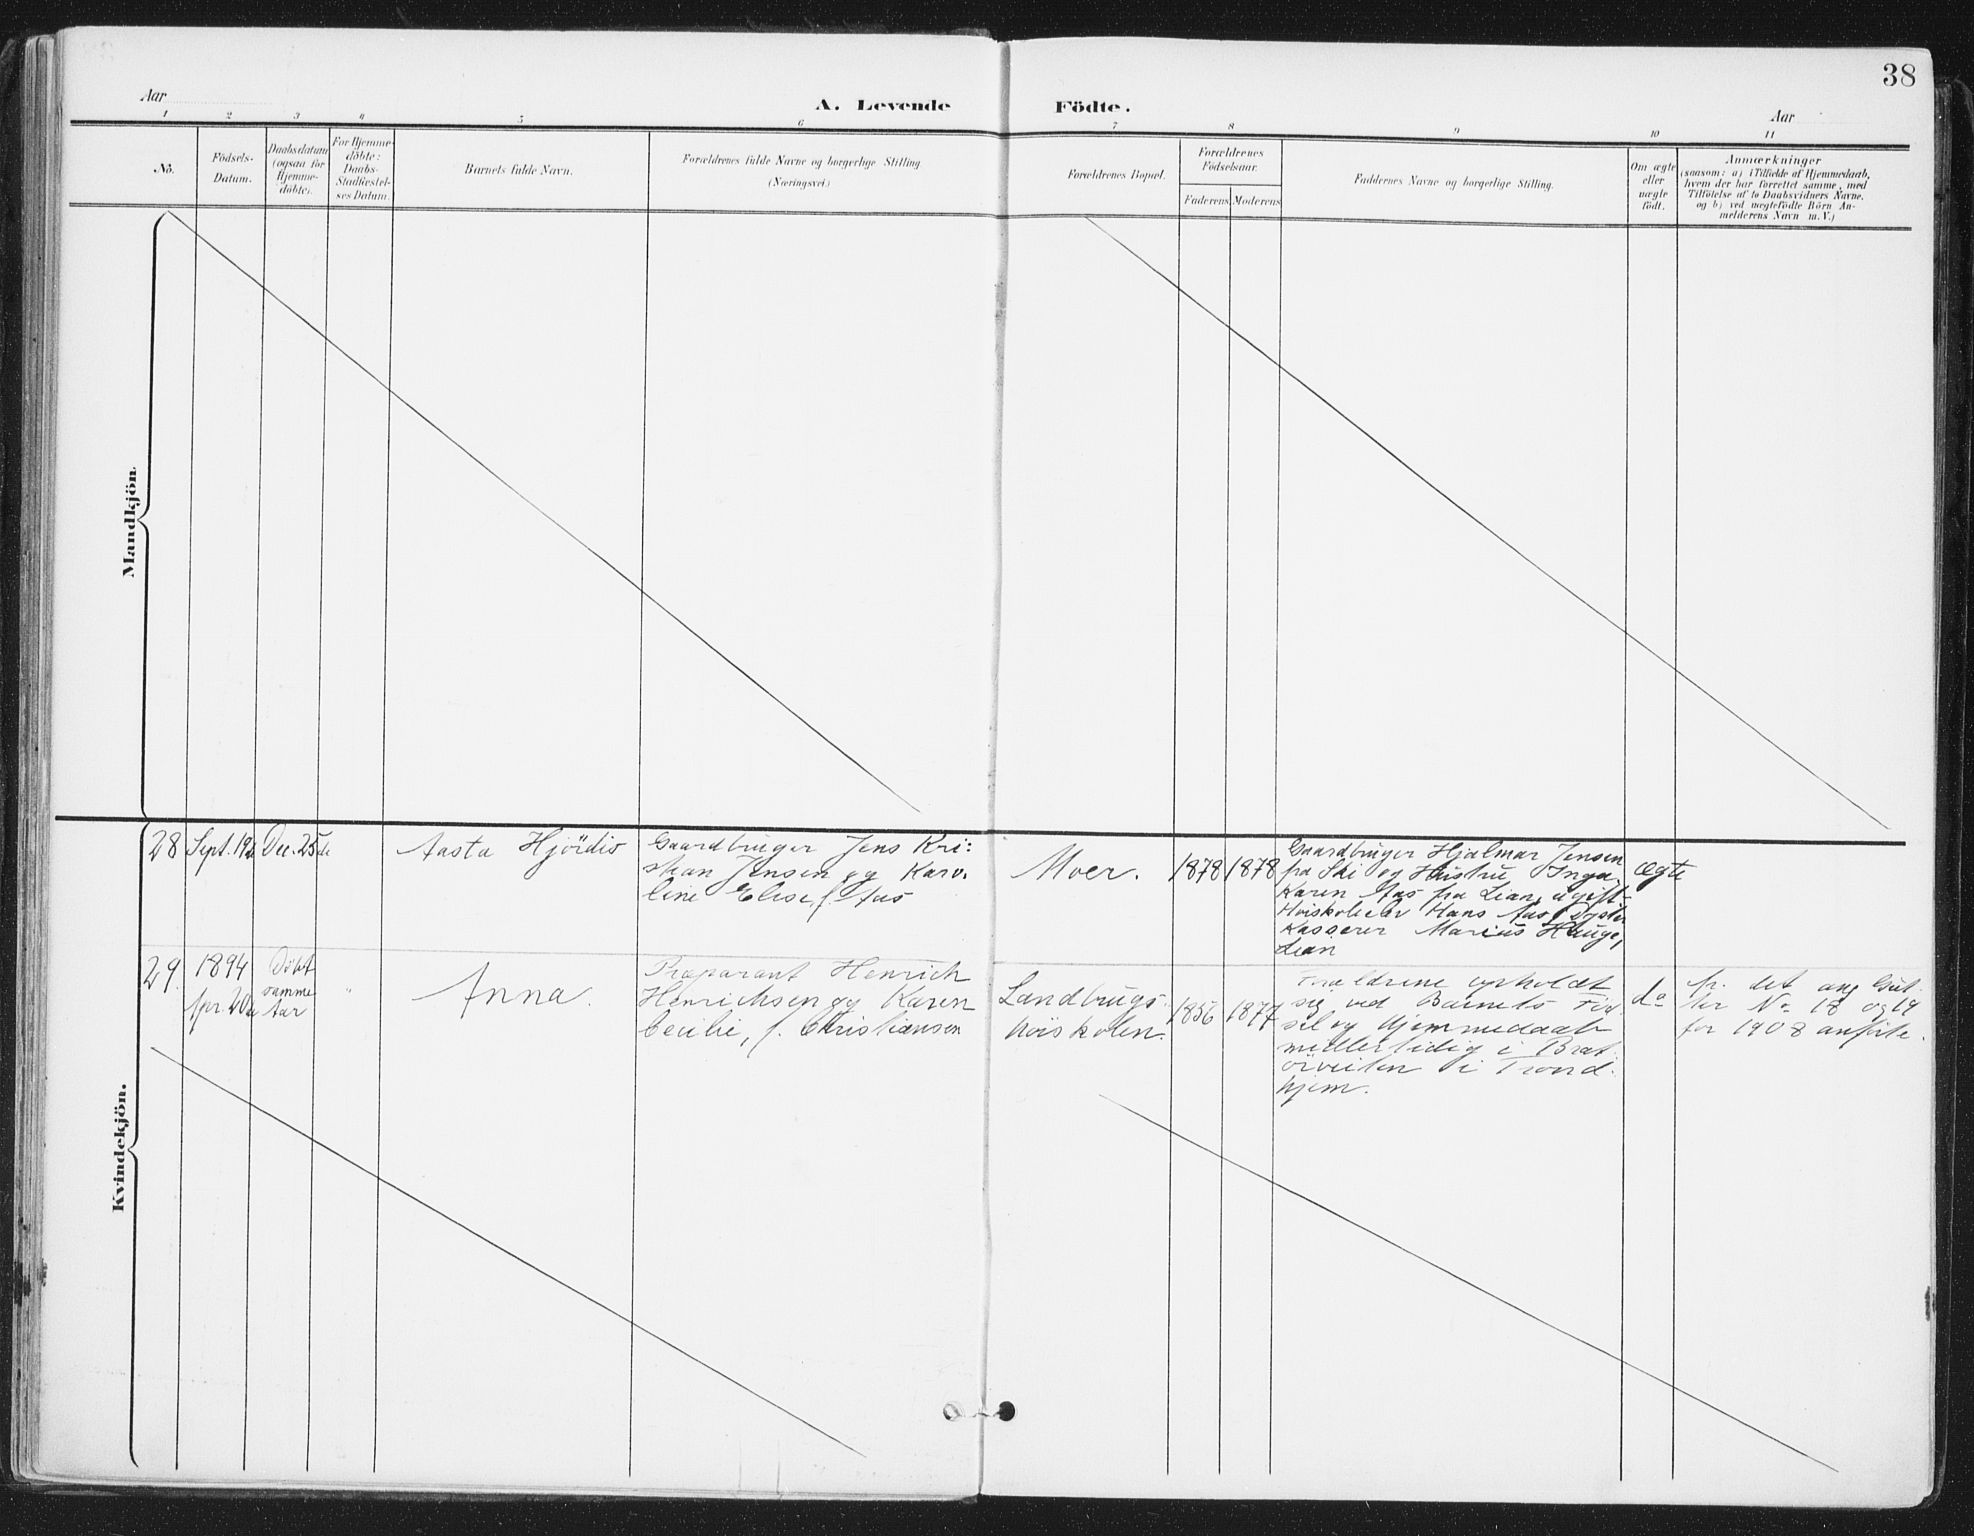 38
Aar
A. Levende Födte.
Aar
1 2 3 4 5 6 7 8 9 10 11
No.
Födsels-
Datum.
Daabsdatum
(ogsaa for
Hjemme-
döbte).
For Hjemme-
döbte:
Daabs-
Stadfæstel-
ses Datum.
Barnets fulde Navn.
Forældrenes fulde Navne og borgerlige Stilling
(Næringsvei.)
Forældrenes Bopæl.
Forældrenes
Födselsaar.
Faderens Moderens
Faddernes Navne og borgerlige Stilling.
Om ægte
eller
uægte
födt.
Anmærkninger
(saasom: a) i Tilfælde af Hjemmedaab,
hvem der har forrettet samme, med
Tilföielse af to Daabsvidners Navne,
og b) ved uægtefödte Börn An-
melderens Navn m. V.)
Mandkjön.
Kvindekjön.
28
Sept. 19de
Dec. 25de
Aasta Hjördis
Gaardbruger Jens Kri-
stian Jensen og Karo-
line Elise, f. Aas
Moer.
1878 1878
Gaardbruger Hjalmar Jensen
fra Ski og Hustru Inga,
Karen Aas fra Lian, ugift
Høiskoleelev Hans Aas,
Kasserer Marius Hauge,
Lian
ægte
29.
1894
Apr. 20de
Døbt
samme
Aar
"
Anna.
Præparant Henrich
Henrichsen og Karen
Cecilie, f. Christiansen
Landbrugs-
høiskolen.
1856 1877
Forældrene opholdt
sig ved Barnets Fød-
sel og Hjemmedaab
midlertidig i Brat-
ørveiten i Trond-
hjem.
do
fr. det ang. Gut-
ter No 18 og 19
for 1908 anførte.